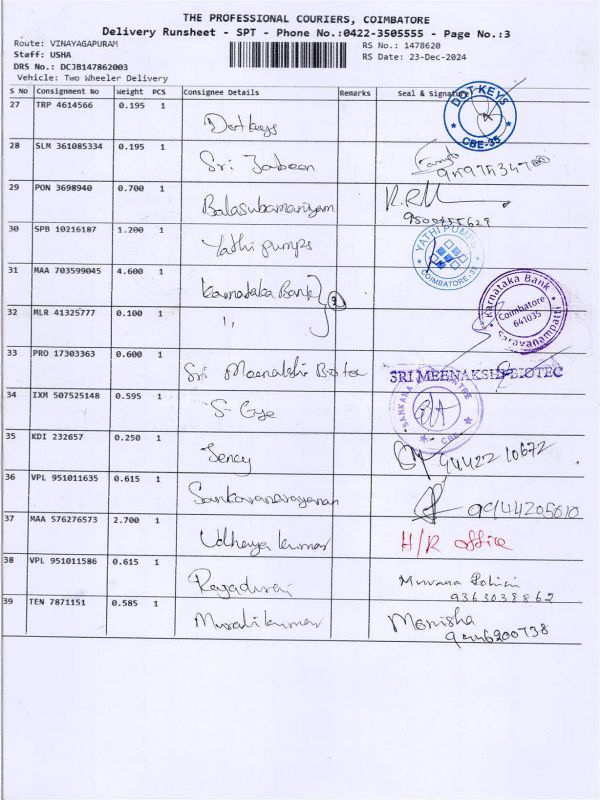 THE PROFESSIONAL COURIERS, COIMBATORE
Delivery Runsheet - SPT - Phone No.:0422-3505555 - Page No.:3
Route: VINAYAGAPURAM RS No.: 1478620
Staff: USHA RS Date: 23-Dec-2024
DRS No.: DCJB147862003
Vehicle: Two Wheeler Delivery
S No Consignment No Weight PCS Consignee Details Remarks Seal & Signature
27 TRP 4614566 0.195 1 Dot Keys DOT KEYS CBE-35
28 SLM 361085334 0.195 1 Sri
29 PON 3698940 0.700 1 Balasubamaniyam
30 SPB 10216187 1.200 1 Yathi pumps YATHI PUMPS COIMBATORE-35
31 MAA 703599045 4.600 1 Karnataka Bank 2 Karnataka Bank Coimbatore 641035 Saravanampatti
32 MLR 41325777 0.100 1 ,,
33 PRO 17303363 0.600 1 Sri Meenakshi Biotec SRI MEENAKSHI BIOTEC
34 IXM 507525148 0.595 1 S- Eye SANKARA CBE
35 KDI 232657 0.250 1 Jency 94422 10672
36 VPL 951011635 0.615 1 Sankaranarayanan 9944205610
37 MAA 576276573 2.700 1 Udhaya kumar H/R office
38 VPL 951011586 0.615 1 Rajadurai
9363038862
39 TEN 7871151 0.585 1 Muralikumar Monisha